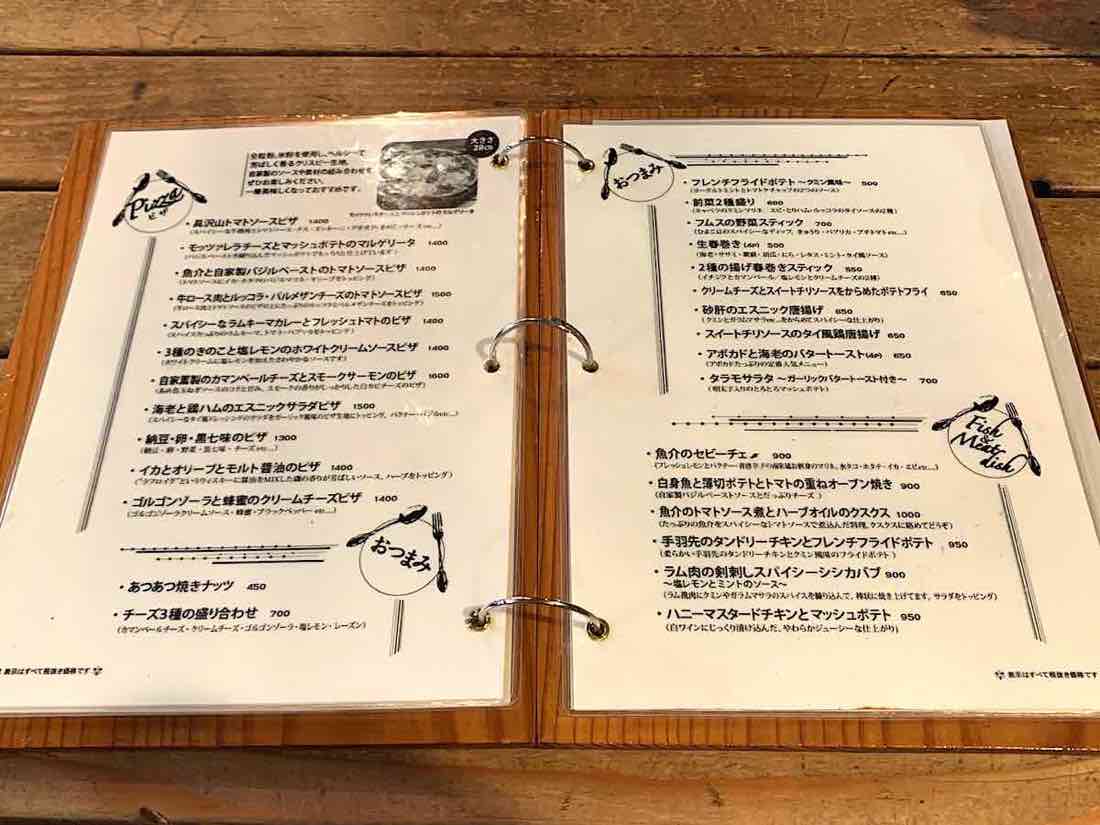 Pizza
ピザ
全粒粉、米粉を使用し、ヘルシーで
芳ばしく香るクリスピー生地。
自家製のソースや素材の組み合わせを
ぜひお楽しみください。
一層美味しくなっておすすめです。
大きさ
28cm
モッツァレラチーズとマッシュポテトのマルゲリータ
・長沢山トマトソースピザ 1400
・モッツァレラチーズとマッシュポテトのマルゲリータ 1400
・魚介と自家製バジルペーストのトマトソースピザ 1400
・牛ロース肉とルッコラ・パルメザンチーズのトマトソースピザ 1500
・スパイシーなラムキーマカレーとフレッシュトマトのピザ 1400
・3種のきのこと塩レモンのホワイトクリームソースピザ 1400
(ホワイトクリームに塩レモンを加えたさわやかなソースです)
・自家薫製のカマンベールチーズとスモークサーモンのピザ 1600
・海老と鶏ハムのエスニックサラダピザ 1500
・納豆・卵・黒七味のピザ 1300
(納豆・卵・野菜・黒七味・チーズetc...)
・イカとオリーブとモルト醤油のピザ 1400
・ゴルゴンゾーラと蜂蜜のクリームチーズピザ 1400
(ゴルゴンゾーラクリームソース・蜂蜜・ブラックペッパー etc...)
おつまみ
・あつあつ焼きナッツ 450
・チーズ3種の盛り合わせ 700
(カマンベールチーズ・クリームチーズ・ゴルゴンゾーラ・塩レモン・レーズン)
表示はすべて税抜き価格です
おつまみ
・フレンチフライドポテト ～クミン風味～ 500
(ヨーグルトミントとトマトケチャップの2つのソース)
・前菜2種盛り 600
・フムスの野菜スティック 700
(ひよこ豆のスパイシーなディップ、きゅうり・パプリカ・プチトマトetc...)
・生春巻き(4P) 500
・2種の揚げ春巻きスティック 550
(イチジクとカマンベール/塩レモンとクリームチーズの2種)
・クリームチーズとスイートチリソースをからめたポテトフライ 650
・砂肝のエスニック唐揚げ 650
(クミンとガラムマサラetc...をからめてスパイシーな仕上がり)
・スイートチリソースのタイ風鶏唐揚げ 650
・アボカドと海老のバタートースト(4P) 650
(アボカドたっぷりの定番人気メニュー)
・タラモサラタ ～ガーリックバタートースト付き～ 700
(明太子入りのとろとろマッシュポテト)
Fish
&
Meats
dish
・魚介のセビーチェ 900
・白身魚と薄切ポテトとトマトの重ねオーブン焼き 900
(自家製バジルペーストソースとたっぷりチーズ)
・魚介のトマトソース煮とハーブオイルのクスクス 1000
(たっぷりの魚介をスパイシーなトマトソースで煮込んだ料理。クスクスに絡めてどうぞ)
・手羽先のタンドリーチキンとフレンチフライドポテト 950
(柔らかい手羽先のタンドリーチキンとクミン風味のフライドポテト)
・ラム肉の剣刺しスパイシーシシカバブ 900
～塩レモンとミントのソース～
(ラム挽肉にクミンやガラムマサラのスパイスを練り込んで、棒状に焼き上げてます。サラダをトッピング)
・ハニーマスタードチキンとマッシュポテト 950
(白ワインにじっくり漬け込んだ、やわらかジューシーな仕上がり)
表示はすべて税抜き価格です